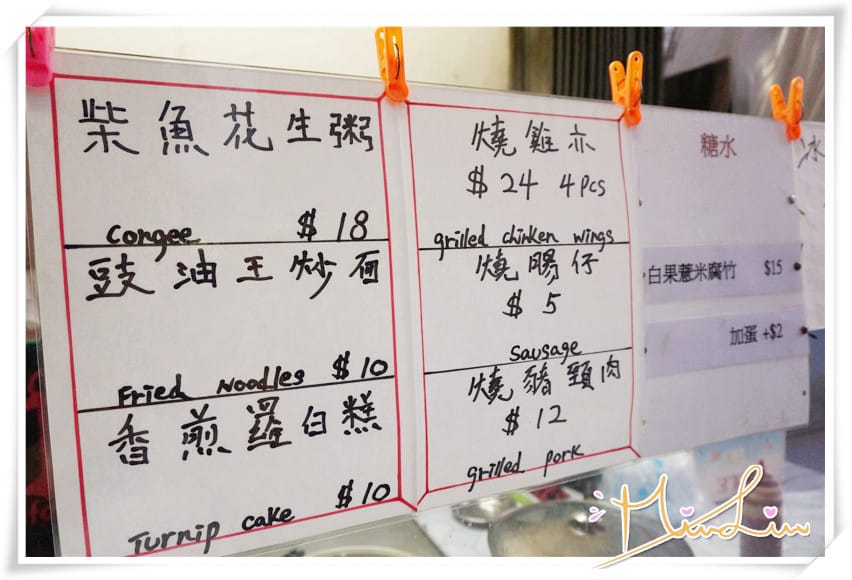 柴魚花生粥
Congee $18
豉油王炒面
Fried Noodles $10
香煎羅白糕
Turnip cake $10
燒雞亦
$24 4pcs
grilled chinken wings
燒腸仔
$5
Sausage
燒豬頸肉
$12
grilled pork
糖水
白果薏米腐竹 $15
加蛋 +$2
冰
MinLin